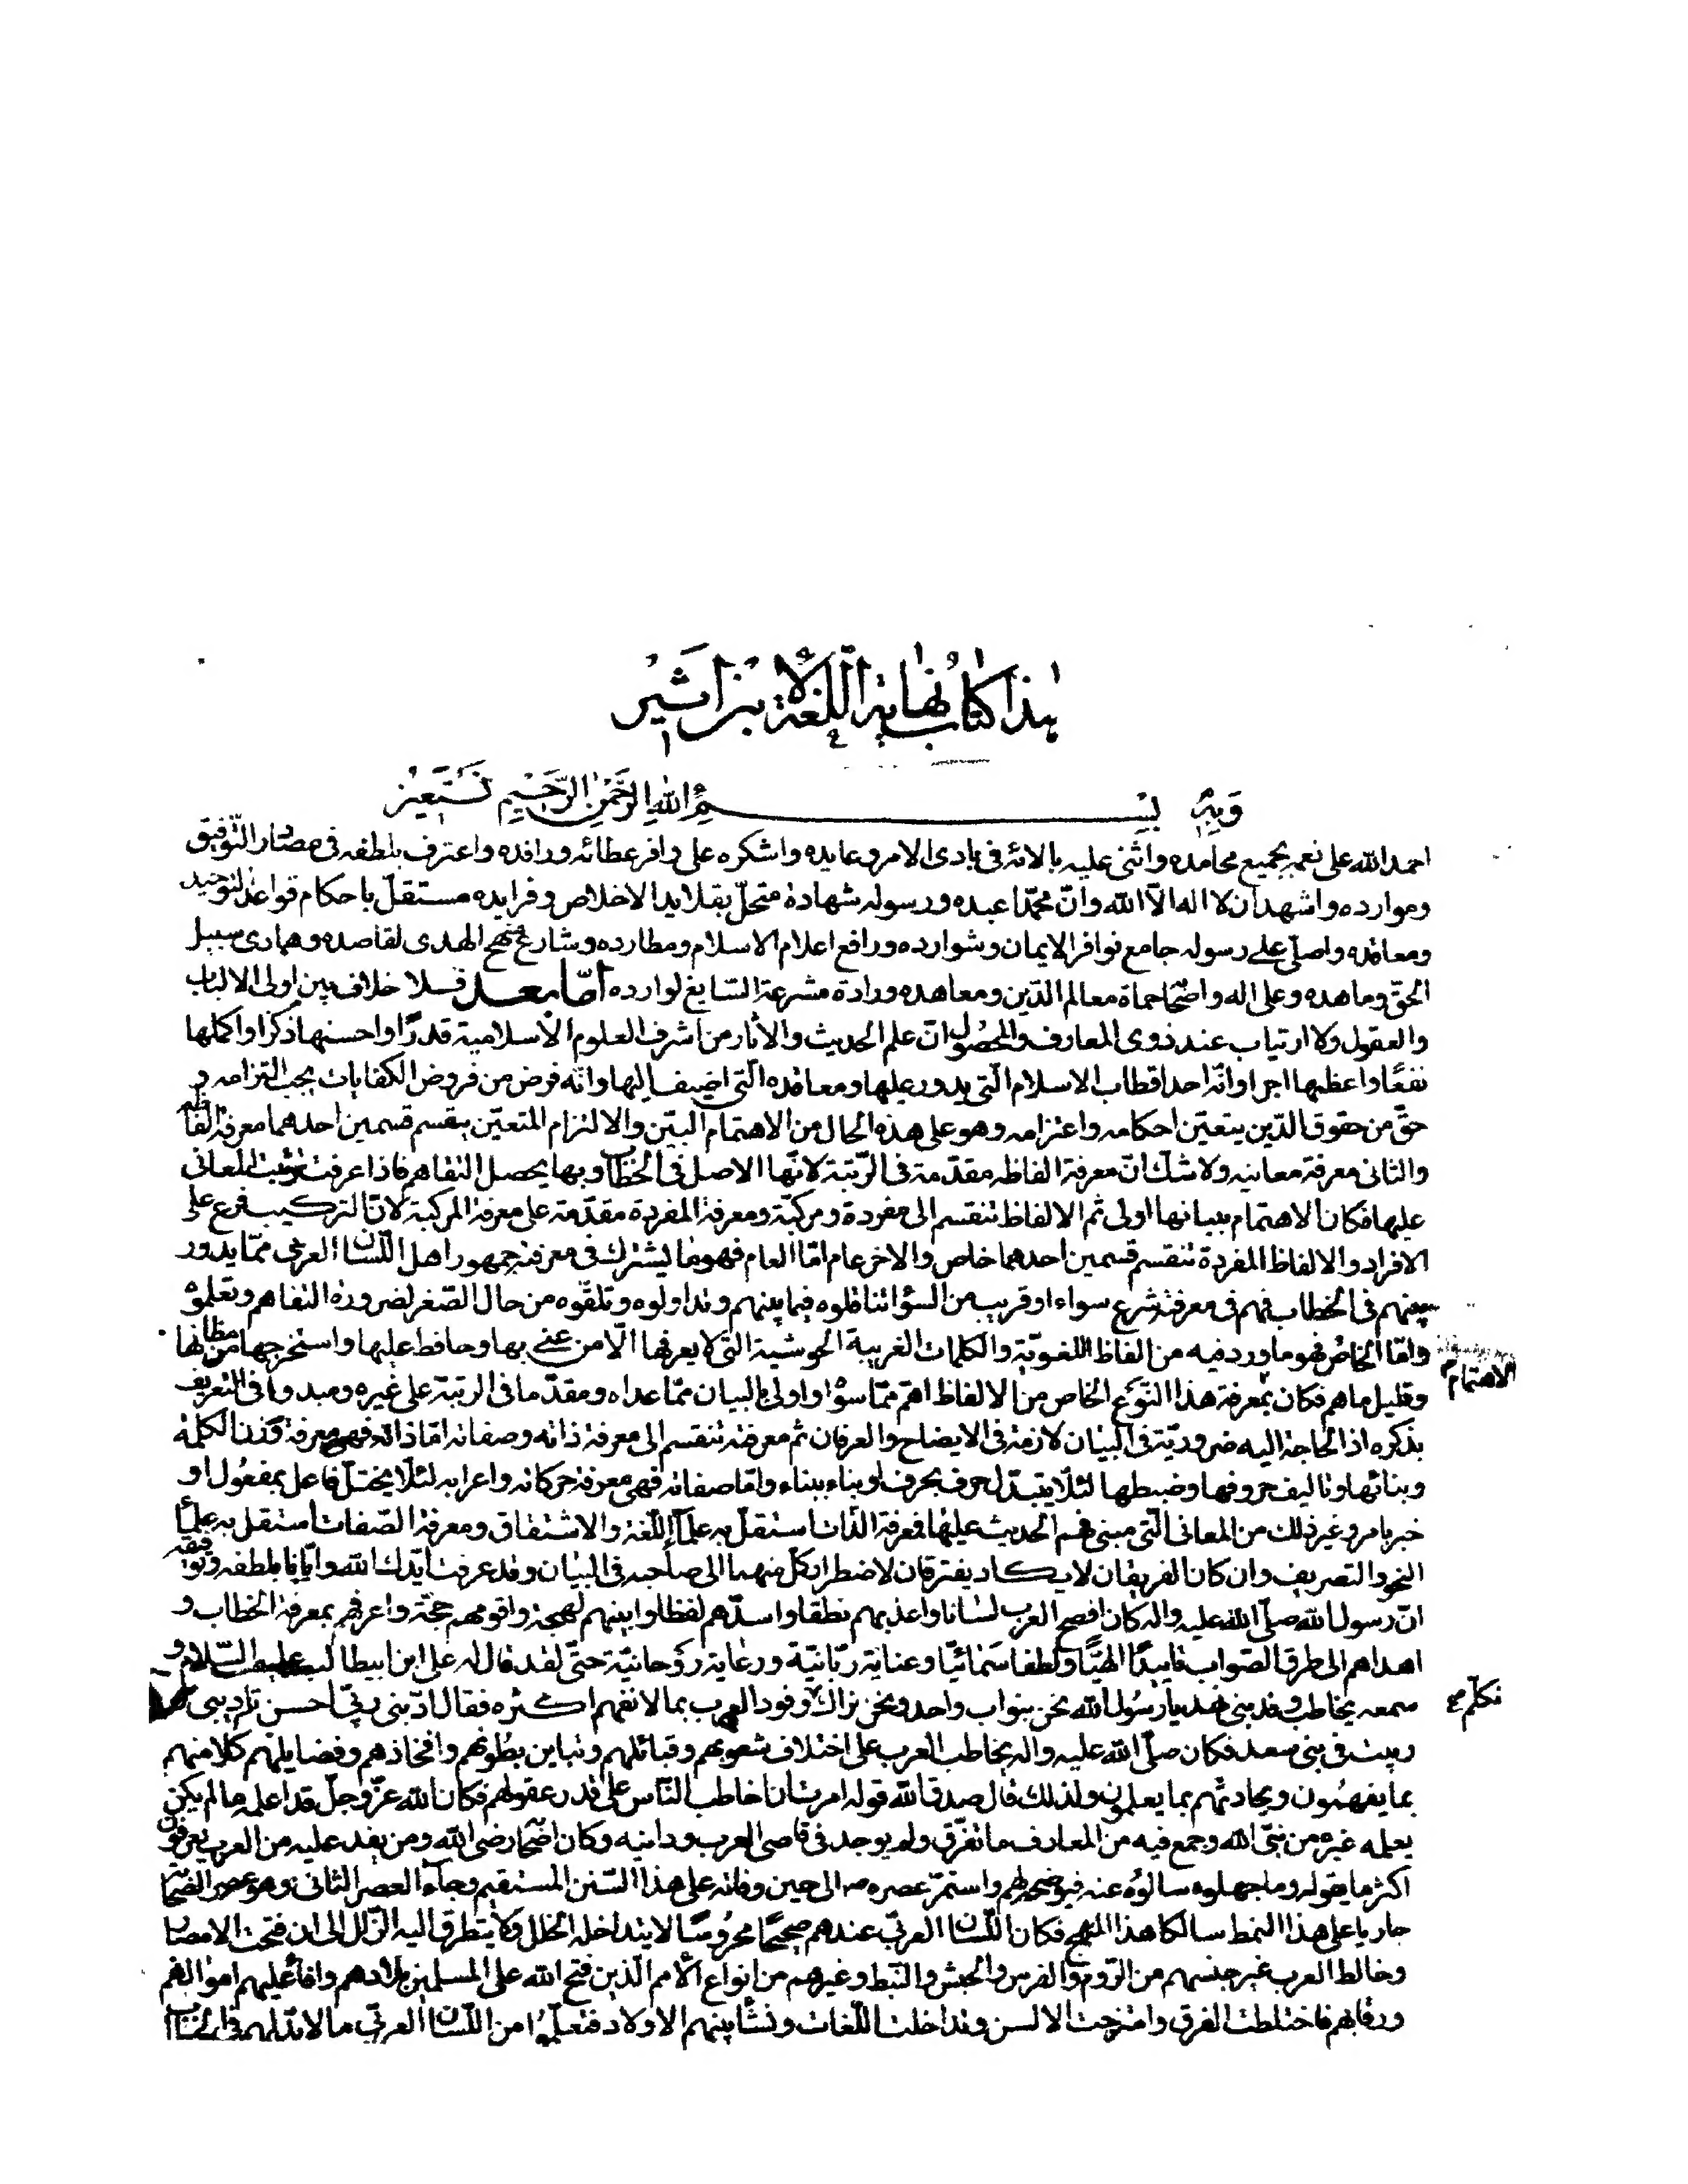 هذا كتاب نهاية اللغة لابن اثير
وبه بسم الله الرحمن الرحيم نستعين
احمد الله على نعمه بجميع محامده واثنى عليه بالائه فى بادى الامر وعايده واشكره على وافر عطائه ورافده واعترف بلطفه فى مصادر التوفيق
وموارده واشهد ان لا اله الا الله وان محمدا عبده ورسوله شهادة متحل بقلايد الاخلاص وفرايده مستقل باحكام قواعد التوحيد
ومعاقده واصلى على رسوله جامع نوافر الايمان وشوارده ورافع اعلام الاسلام ومطارده وشارع نهج الهدى لقاصده وهادى سبيل
الحق وماهده وعلى اله واصحابه حماة معالم الدين ومعاهده ورادة مشرعة السايغ لوارده اما بعد فلا خلاف بين اولى الالباب
والعقول ولا ارتياب عند ذوى المعارف والمحصول ان علم الحديث والاثار من اشرف العلوم الاسلامية قدرا واحسنها ذكرا واكملها
نفعا واعظمها اجرا وانه احد اقطاب الاسلام التى يدور عليها ومعاقده التى اضيف اليها وانه فرض من فروض الكفايات يجب التزامه و
حق من حقوق الدين يتعين احكامه واعتزامه وهو على هذه الحال من الاهتمام البين والالتزام المتعين ينقسم قسمين احدهما معرفة الفاظه
والثانى معرفة معانيه ولا شك ان معرفة الفاظه مقدمة فى الرتبة لانها الاصل فى الخطاب وبها يحصل التفاهم فاذا عرفت ترتبت المعانى
عليها فكان الاهتمام ببيانها اولى ثم الالفاظ تنقسم الى مفردة ومركبة ومعرفة المفردة مقدمة على معرفة المركبة لان التركيب فرع على
الافراد والالفاظ المفردة تنقسم قسمين احدهما خاص والاخر عام اما العام فهو ما يشترك فى معرفته جمهور اهل اللسان العربى مما يدور
بينهم فى الخطاب فهم فى معرفته شرع سواء او قريب من السواء تناقلوه فيما بينهم وتداولوه وتلقوه من حال الصغر لضرورة التفاهم وتعلموه
واما الخاص فهو ما ورد فيه من الفاظ اللغوية والكلمات الغريبة الحوشية التى لا يعرفها الا من عنى بها وحافظ عليها واستخرجها من مظانها
وقليل ما هم فكان بمعرفة هذا النوع الخاص من الالفاظ اهم مما سواه واولى بالبيان مما عداه ومقدما فى الرتبة على غيره ومبدوا فى التعريف
الاهتمام
بذكره اذ الحاجة اليه ضرورية فى البيان لازمة فى الايضاح والعرفان ثم معرفته تنقسم الى معرفة ذاته وصفاته اما ذاته فهى معرفة وزن الكلمة
وبنائها وتاليف حروفها وضبطها لئلا يتبدل حرف بحرف او بناء ببناء واما صفاته فهى معرفة حركاته واعرابه لئلا يختل فاعل بمفعول او
خبر بامر وغير ذلك من المعانى التى مبنى فهم الحديث عليها فمعرفة الذات استقل به علماء اللغة والاشتقاق ومعرفة الصفات استقل به علماء
النحو والتصريف وان كان الفريقان لا يكاد يفترقان لاضطرار كل منهما الى صاحبه فى البيان وقد عرفت ايدك الله وايانا بلطفه وتوفيقه
ان رسول الله صلى الله عليه واله كان افصح العرب لسانا واعذبهم نطقا واسدهم لفظا وابينهم لهجة واقومهم حجة واعرفهم بمعرفة الخطاب و
اهداهم الى طرق الصواب تاييدا الهيا ولطفا سمائيا وعناية ربانية ورعاية روحانية حتى لقد قال له على ابن ابيطالب عليه السلام و
سمعه يخاطب وفد بنى نهد يا رسول الله نحن بنو اب واحد ونحن نراك وفود العرب بما لا نفهم اكثره فقال ادبنى ربى احسن تاديبى
تكلم
ربيت فى بنى سعد فكان صلى الله عليه واله يخاطب العرب على اختلاف شعوبهم وقبائلهم وتباين بطونهم وافخاذهم وفضايلهم كلا منهم
بما يفهمون ويحادثهم بما يعلمون ولذلك قال صدق الله قوله امرت ان اخاطب الناس على قدر عقولهم فكان الله عز وجل قد اعلمه ما لم يكن
يعلمه غيره من نبى الله وجمع فيه من المعارف ما تفرق ولم يوجد فى قاصى العرب ودانيه وكان اصحابه رضى الله ومن يفد عليه من العرب يعرفون
اكثر ما يقوله وما جهلوه سالوه عنه فيوضحه لهم واستمر عصره ص الى حين وفاته على هذا السنن المستقيم وجاء العصر الثانى وهو عصر الصحابة
جاريا على هذا النمط سالكا هذا المنهج فكان اللسان العربى عندهم صحيحا محروسا لا يتداخله الخلل ولا يتطرق اليه الزلل الى ان فتحت الامصار
وخالط العرب غير جنسهم من الروم والفرس والحبش والنبط وغيرهم من انواع الامم الذين فتح الله على المسلمين بلادهم وافاء عليهم اموالهم
ورقابهم فاختلطت الفرق وامتزجت الالسن وتداخلت اللغات ونشا بينهم الاولاد فتعلموا من اللسان العربى ما لا بد لهم فى